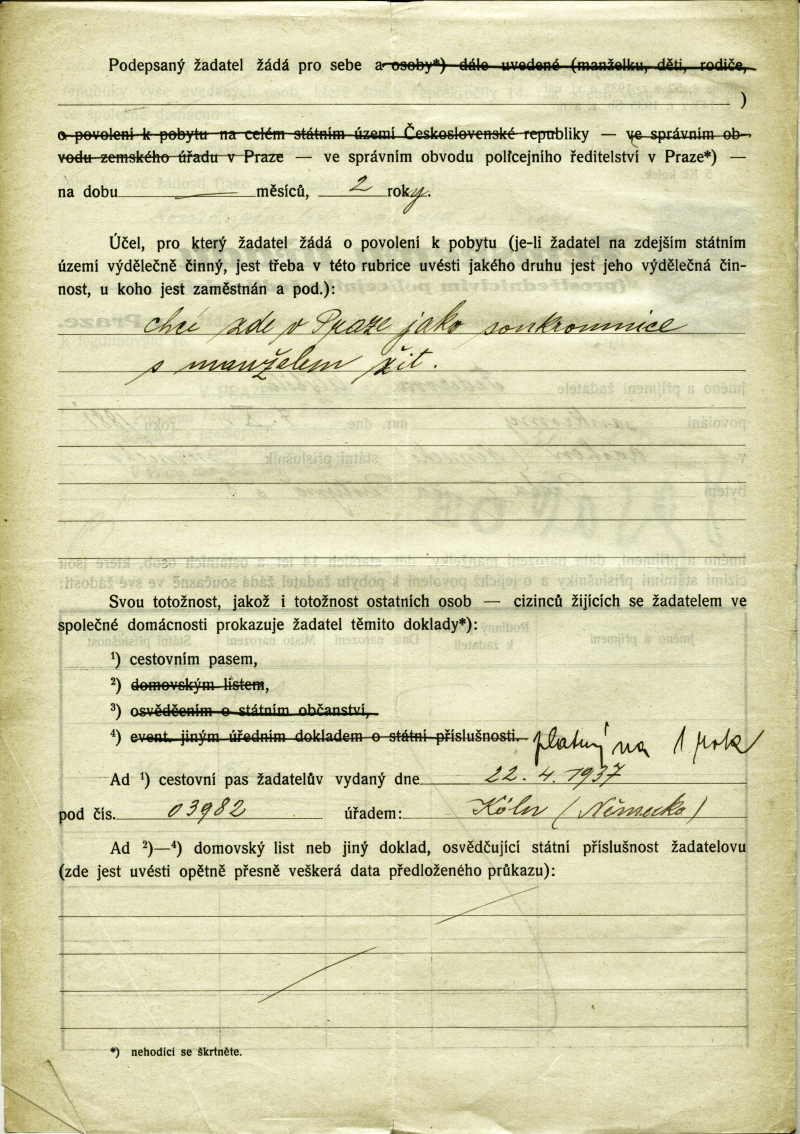 Podepsaný žadatel žádá pro sebe a osoby*) dále uvedené (manželku, děti, rodiče,
)
o povolení k pobytu na celém státním území Československé republiky — ve správním ob-
vodu zemského úřadu v Praze — ve správním obvodu policejního ředitelství v Praze*) —
na dobu — měsíců, 2 roky.
Účel, pro který žadatel žádá o povolení k pobytu (je-li žadatel na zdejším státním
území výdělečně činný, jest třeba v této rubrice uvésti jakého druhu jest jeho výdělečná čin-
nost, u koho jest zaměstnán a pod.):
chci zde v Praze jako soukromnice
s manželem žít.
Svou totožnost, jakož i totožnost ostatních osob — cizinců žijících se žadatelem ve
společné domácnosti prokazuje žadatel těmito doklady*):
¹) cestovním pasem,
²) domovským listem,
³) osvědčením o státním občanství,
⁴) event. jiným úředním dokladem o státní příslušnosti. platný na 1 rok
Ad ¹) cestovní pas žadatelův vydaný dne 22. 4. 1937
pod čís. 03982 úřadem: Köln (Německo)
Ad ²)—⁴) domovský list neb jiný doklad, osvědčující státní příslušnost žadatelovu
(zde jest uvésti opětně přesně veškerá data předloženého průkazu):
*) nehodící se škrtněte.